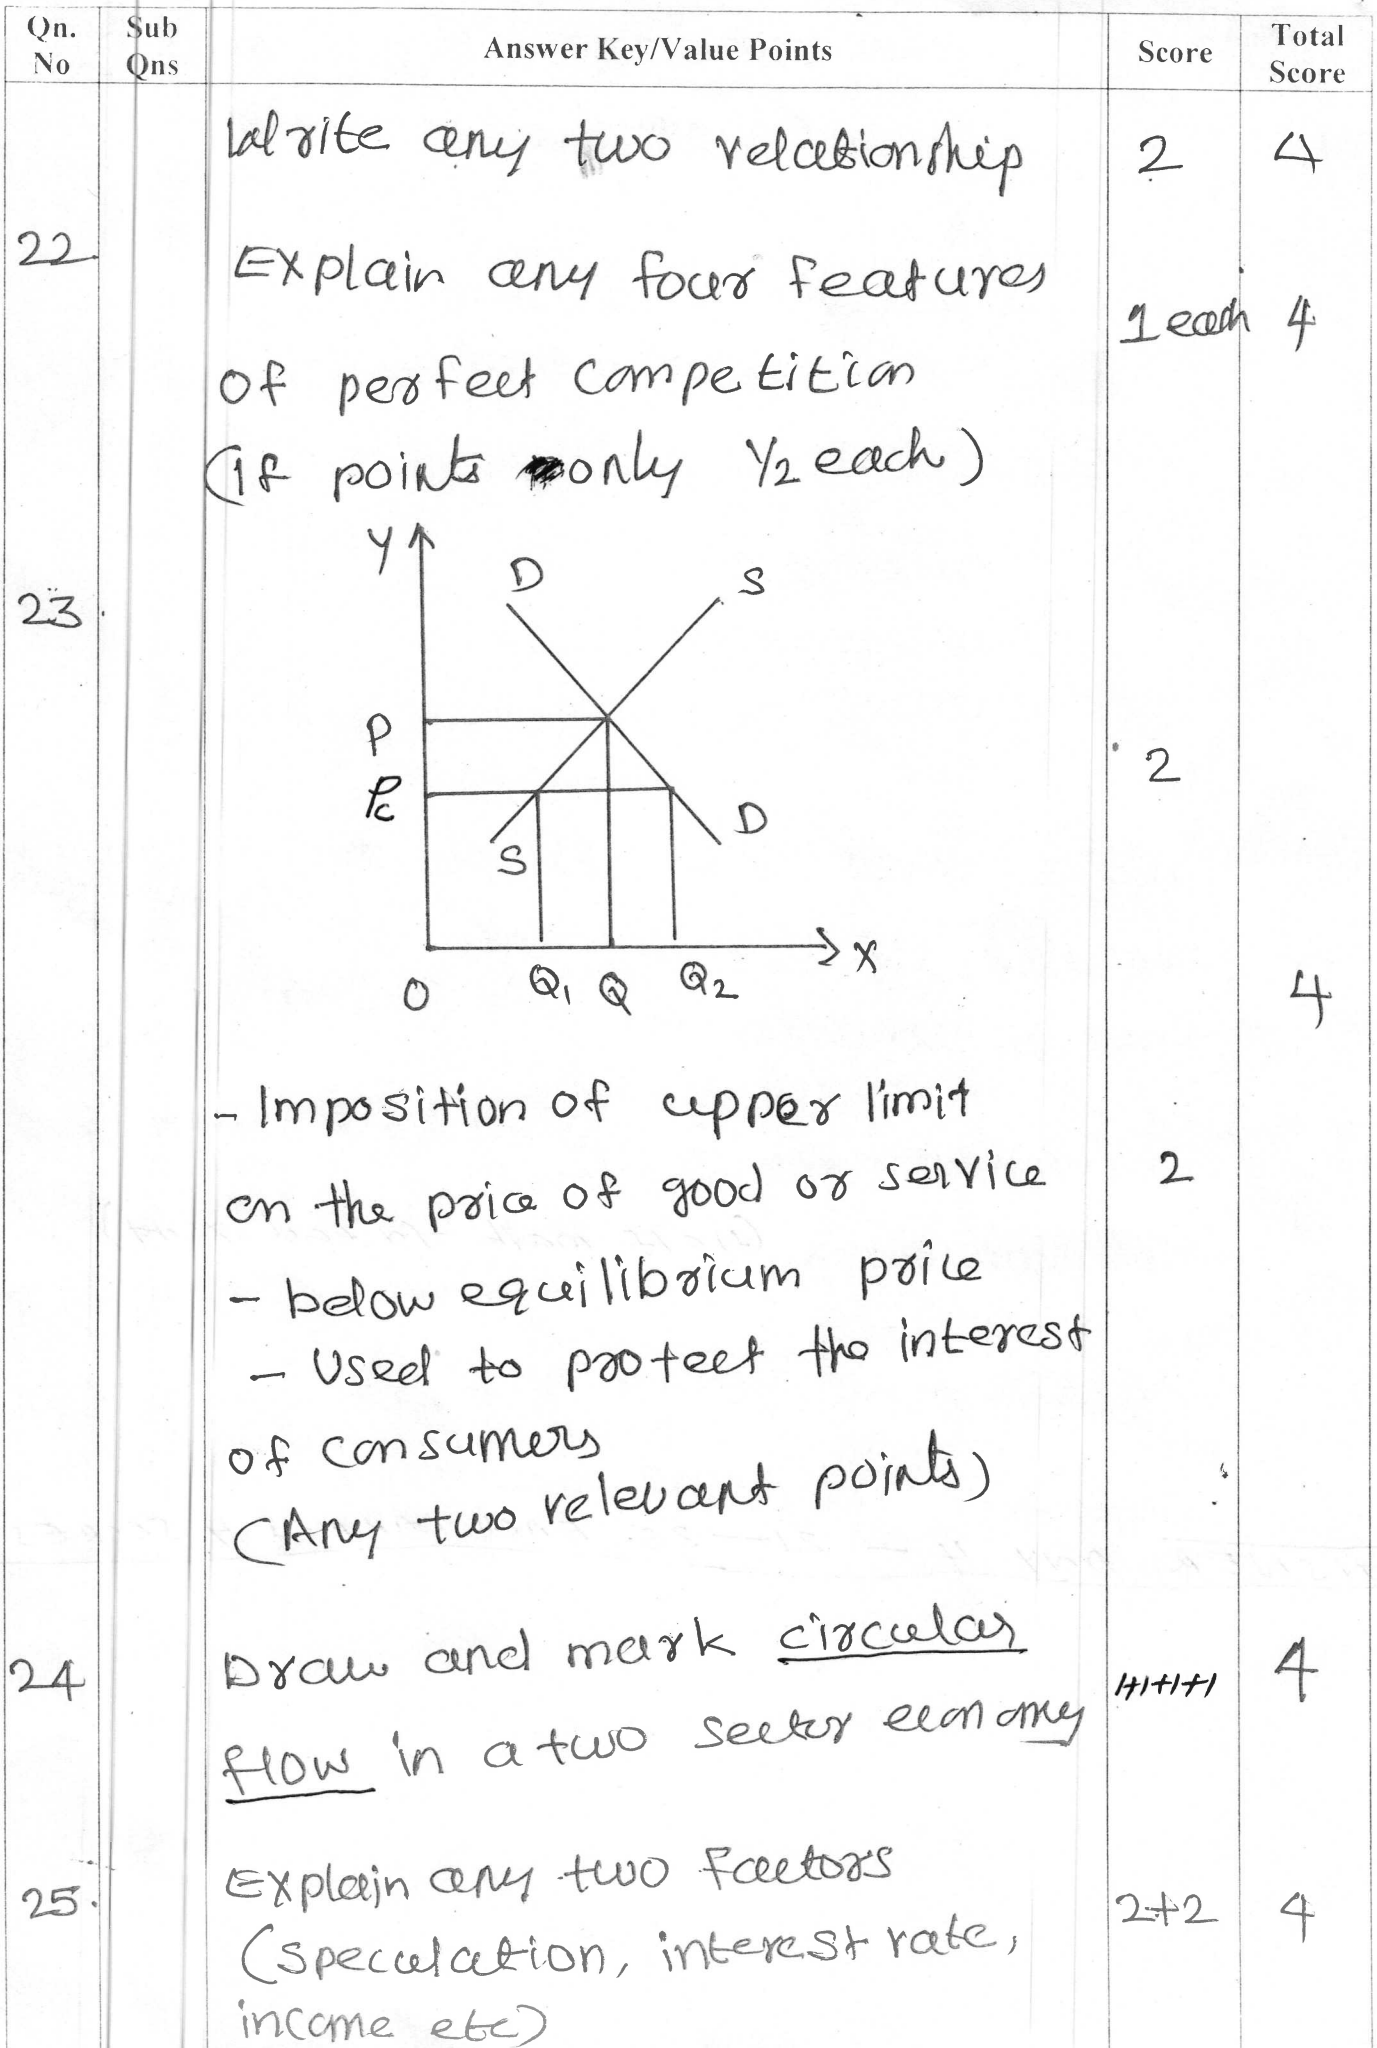 Qn. No Sub Qns Answer Key/Value Points Score Total Score
Write any two relationship 2 4
22 Explain any four features
1 each 4
of perfect competition
(if points only 1/2 each)
Y
D S
23.
P
2
Pc
D
S
X
O Q1 Q Q2
4
- Imposition of upper limit
on the price of good or service 2
- below equilibrium price
- Used to protect the interest
of consumers
(Any two relevant points)
24 Draw and mark circular 1+1+1+1 4
flow in a two sector economy
25. Explain any two factors 2+2 4
(speculation, interest rate,
income etc)